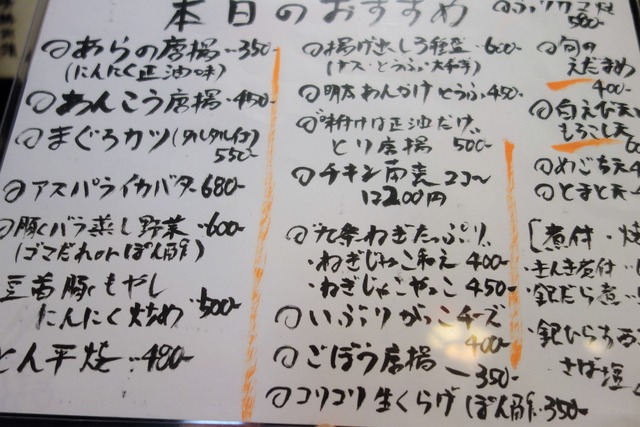 本日のおすすめ
あらの唐揚 350-
(にんにく正油味)
あんこう唐揚 450-
まぐろカツ(タルタル付)
550-
アスパライカバター 680-
豚バラ蒸し野菜 600-
(ゴマだれorぽん酢)
豆苗豚もやし
にんにく炒め 500-
とん平焼 480-
揚げ出し3種盛 600-
(ナス・とうふ・大和芋)
明太あんかけとうふ 450-
味付けは正油だけ、
とり唐揚 500-
チキン南蛮 2コ〜
は200円
九条ねぎたっぷり、
・ねぎじゃこ和え 400-
・ねぎじゃこやっこ 450-
いぶりがっこチーズ
400-
ごぼう唐揚 350-
コリコリ生くらげ ぽん酢 350-
500-
旬の
えだまめ
400-
白えび天
もろこし天
めごち天
とまと天
[煮付・焼
・きんき煮付
・銀だら煮
・銀ひらす
さば塩